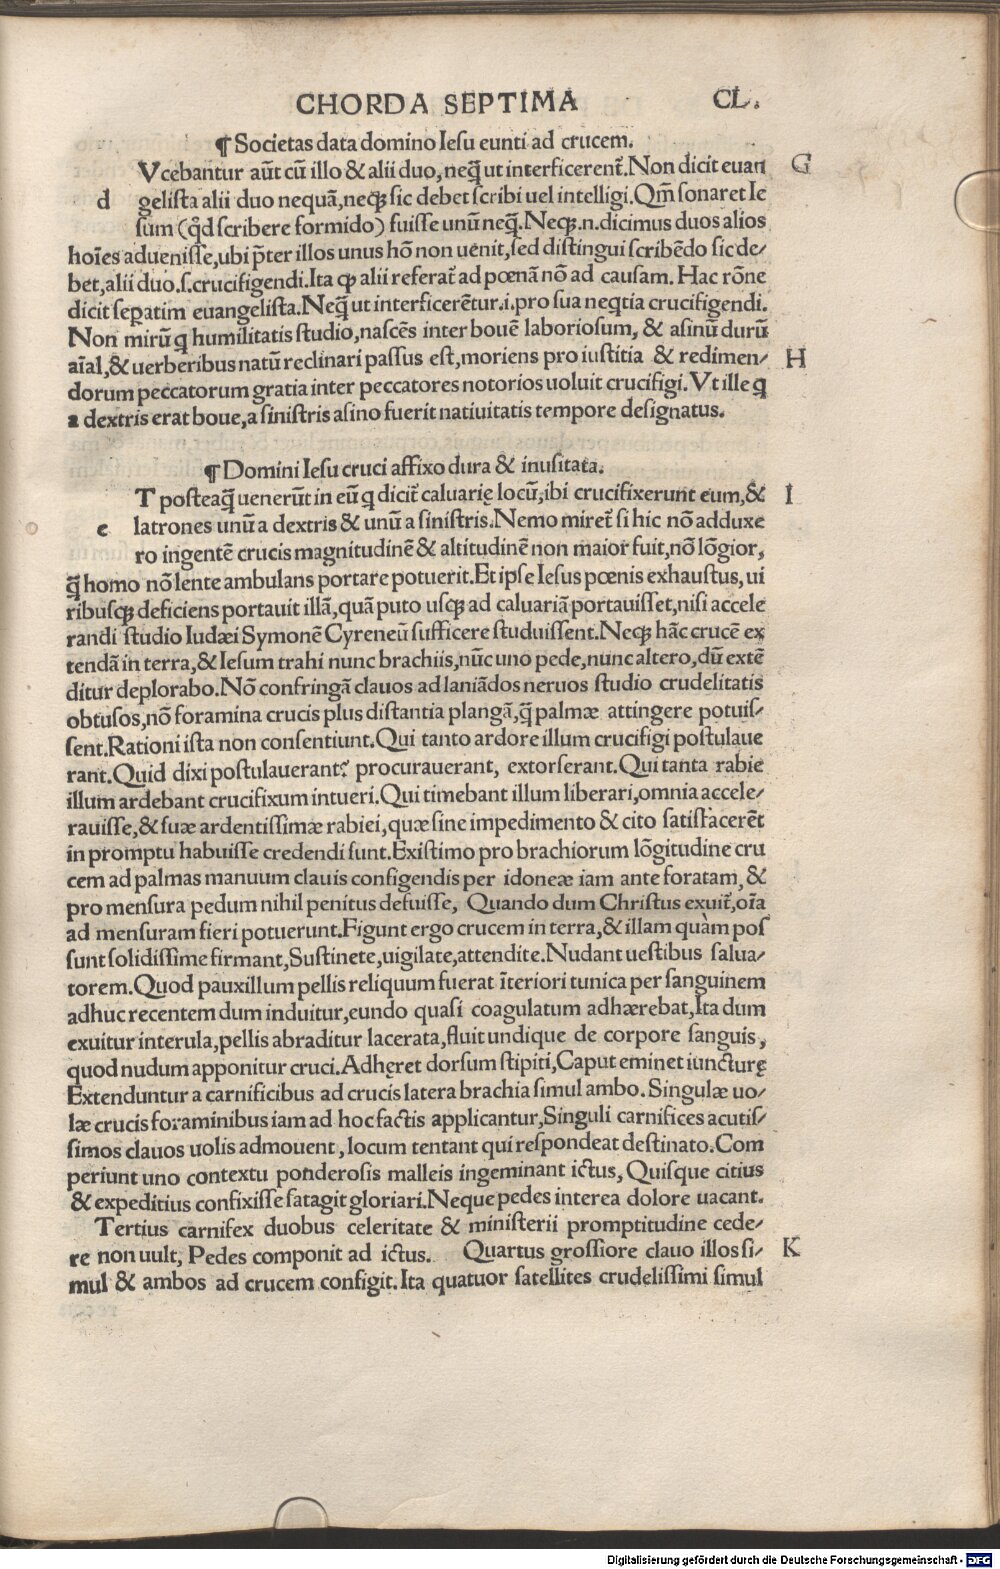 CHORDA SEPTIMA CL.
¶ Societas data domino Iesu eunti ad crucem.
Vcebantur aūt cū illo & alii duo, neq̃ ut interficerent̃. Non dicit euan G
d gelista alii duo nequã, neqꝫ sic debet scribi uel intelligi. Qm̃ sonaret Ie
sum (qd̃ scribere formido) fuisse unũ neq̃. Neqꝫ.n.dicimus duos alios
hoĩes aduenisse, ubi p̃ter illos unus hõ non uenit, sed distingui scribẽdo sic de/
bet, alii duo.s.crucifigendi. Ita ꝙ alii referat̃ ad pœnã nõ ad causam. Hac rõne
dicit sepatim euangelista. Neq̃ ut interficerẽtur.i.pro sua neq̃tia crucifigendi.
Non mirũ q humilitatis studio, nascẽs inter bouẽ laboriosum, & asinũ durũ
aĩal, & uerberibus natũ reclinari passus est, moriens pro iustitia & redimen/ H
dorum peccatorum gratia inter peccatores notorios uoluit crucifigi. Vt ille q
a dextris erat boue, a sinistris asino fuerit natiuitatis tempore designatus.
¶ Domini Iesu cruci affixo dura & inusitata.
T posteaq̃ uenerũt in eũ q dicit̃ caluarię locũ, ibi crucifixerunt eum, & I
e latrones unũ a dextris & unũ a sinistris. Nemo miret̃ si hic nõ adduxe
ro ingentẽ crucis magnitudinẽ & altitudinẽ non maior fuit, nõ lõgior,
q̃ homo nõ lente ambulans portare potuerit. Et ipse Iesus pœnis exhaustus, ui
ribusqꝫ deficiens portauit illã, quã puto usqꝫ ad caluariã portauisset, nisi accele
randi studio Iudæi Symonẽ Cyreneũ sufficere studuissent. Neqꝫ hãc crucẽ ex
tendã in terra, & Iesum trahi nunc brachiis, nũc uno pede, nunc altero, dũ extẽ
ditur deplorabo. Nõ confringã clauos ad laniãdos neruos studio crudelitatis
obtusos, nõ foramina crucis plus distantia plangã, q̃ palmæ attingere potuis/
sent. Rationi ista non consentiunt. Qui tanto ardore illum crucifigi postulaue
rant. Quid dixi postulauerant? procurauerant, extorserant. Qui tanta rabie
illum ardebant crucifixum intueri. Qui timebant illum liberari, omnia accele/
rauisse, & suæ ardentissimæ rabiei, quæ sine impedimento & cito satisfacerẽt
in promptu habuisse credendi sunt. Existimo pro brachiorum lõgitudine cru
cem ad palmas manuum clauis configendis per idoneæ iam ante foratam, &
pro mensura pedum nihil penitus defuisse, Quando dum Christus exuit̃, oĩa
ad mensuram fieri potuerunt. Figunt ergo crucem in terra, & illam quàm pos
sunt solidissime firmant, Sustinete, uigilate, attendite. Nudant uestibus salua/
torem. Quod pauxillum pellis reliquum fuerat ĩteriori tunica per sanguinem
adhuc recentem dum induitur, eundo quasi coagulatum adhærebat, Ita dum
exuitur interula, pellis abraditur lacerata, fluit undique de corpore sanguis,
quod nudum apponitur cruci. Adhęret dorsum stipiti, Caput eminet iuncturę
Extenduntur a carnificibus ad crucis latera brachia simul ambo. Singulæ uo/
læ crucis foraminibus iam ad hoc factis applicantur, Singuli carnifices acutis/
simos clauos uolis admouent, locum tentant qui respondeat destinato. Com
periunt uno contextu ponderosis malleis ingeminant ictus, Quisque citius
& expeditius confixisse satagit gloriari. Neque pedes interea dolore uacant.
Tertius carnifex duobus celeritate & ministerii promptitudine cede/
re non uult, Pedes componit ad ictus. Quartus grossiore clauo illos si/ K
mul & ambos ad crucem configit. Ita quatuor satellites crudelissimi simul
Digitalisierung gefördert durch die Deutsche Forschungsgemeinschaft - DFG